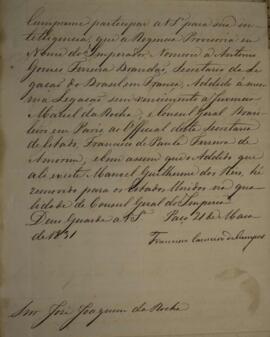 Cumpreme participar a VS.ª para sua in-
telligencia, que a Regencia Provisoria em
Nome do Imperador Nomeou a Antonio
Gomes Ferreira Brandaõ, Secretario de Le
gaçaõ do Brasil em França, Addido á mes
ma Legaçaõ sem vencimento a Juvencio
Maciel da Rocha, e Consul Geral Brasi-
leiro em Paris ao Official desta Secretaria
de Estado, Francisco de Paula Ferreira de
Amorim, e bem assim que o Addido que
ali existe Manoel Guilherme dos Reis, he
removido para os Estados Unidos na qua
lidade de Consul Geral do Imperio
Deos Guarde a VS. Paço 21 de Maio
de 1831
Francisco Carneiro de Campos
Snr. José Joaquim da Rocha